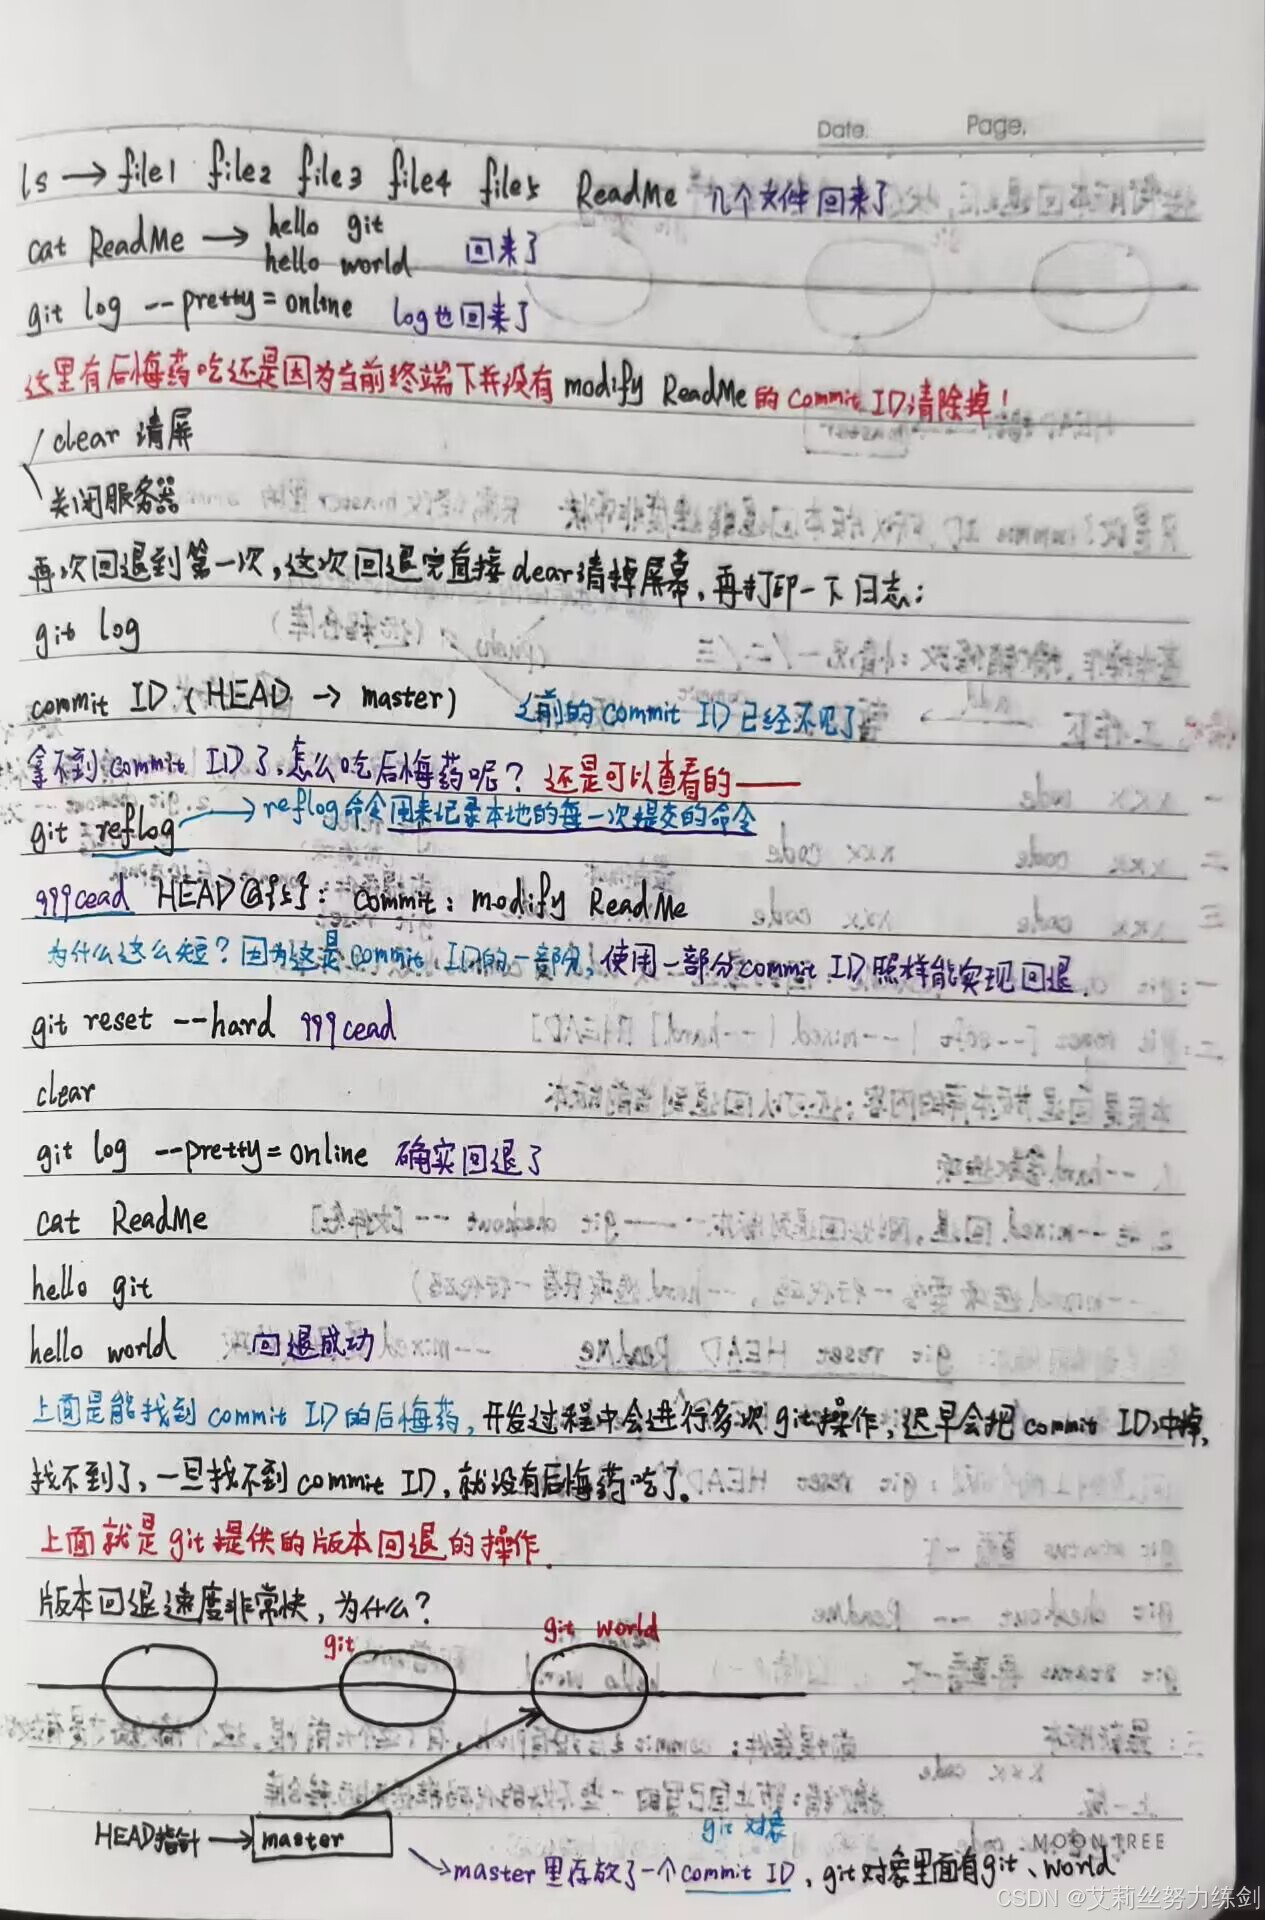 Date.
Page.
ls → file1 file2 file3 file4 file5 ReadMe 几个文件回来了
cat ReadMe → hello git
hello world 回来了
git log --pretty=online log也回来了
这里有后悔药吃还是因为当前终端下并没有modify ReadMe的commit ID清除掉!
clear 清屏
关闭服务器
再次回退到第一次,这次回退完直接clear清掉屏幕,再打印一下日志:
git log
commit ID (HEAD → master) 之前的commit ID已经不见了
拿不到commit ID了,怎么吃后悔药呢?还是可以查看的——
git reflog → reflog命令用来记录本地的每一次提交的命令
999cead HEAD@{5}: commit: modify ReadMe
为什么这么短?因为这是commit ID的一部分,使用一部分commit ID照样能实现回退.
git reset --hard 999cead
clear
git log --pretty=online 确实回退了
cat ReadMe
hello git
hello world 回退成功
上面是能找到commit ID的后悔药,开发过程中会进行多次git操作,迟早会把commit ID冲掉,
找不到了,一旦找不到commit ID,就没有后悔药吃了.
上面就是git提供的版本回退的操作.
版本回退速度非常快,为什么?
git
git world
HEAD指针 → master
git对象
master里存放了一个commit ID,git对象里面有git、world
MOON TREE
CSDN @艾莉丝努力练剑